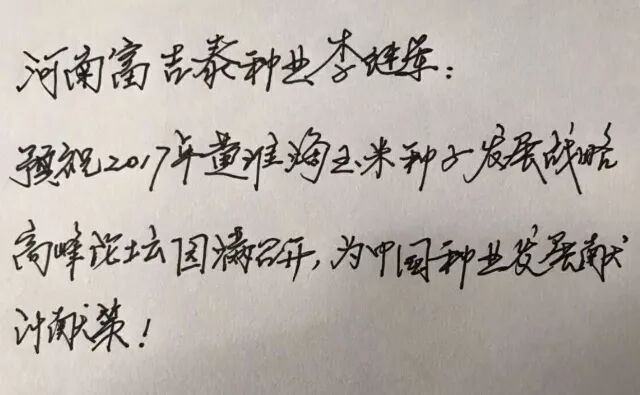 河南富吉泰种业李继军：
预祝2017年黄淮海玉米种子发展战略
高峰论坛圆满召开，为中国种业发展献
计献策！